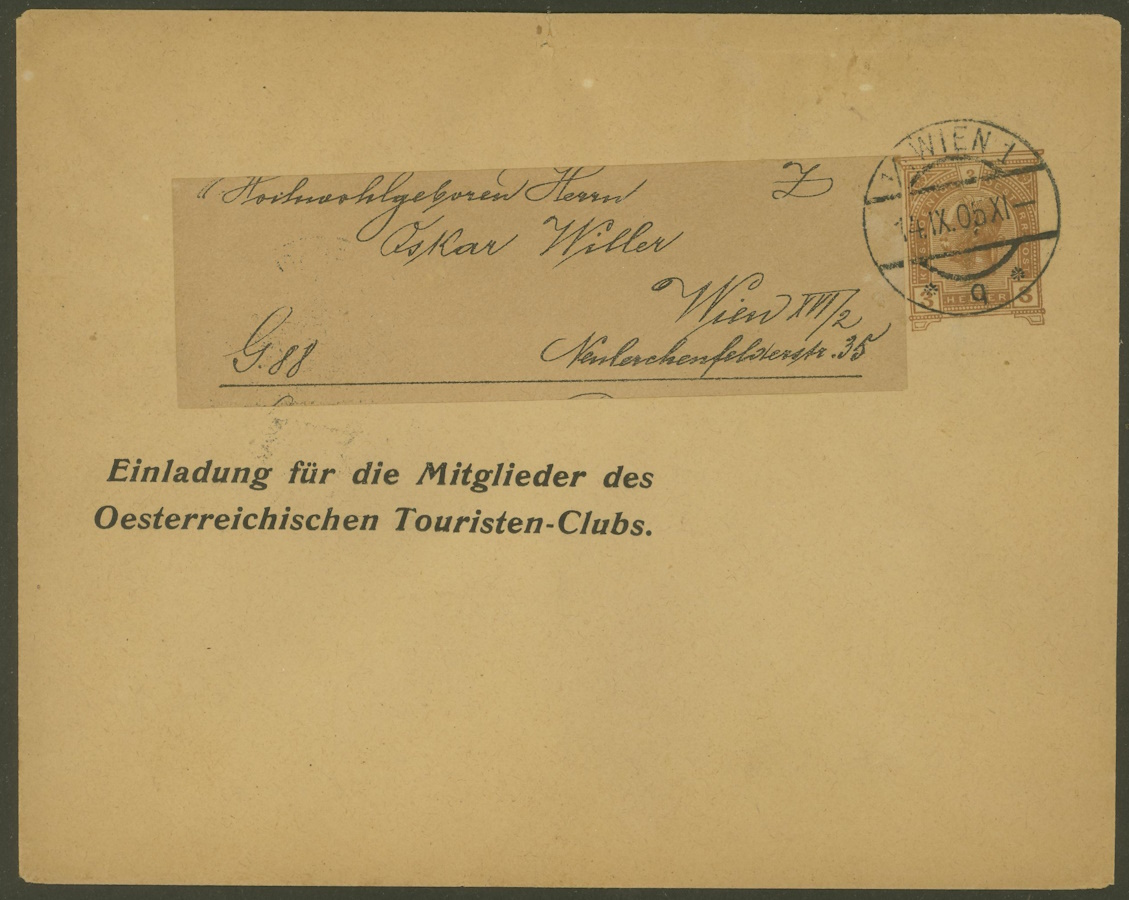 Hochwohlgeboren Herrn Z
Oskar Willer
Wien XVI/2
G. 88 Neulerchenfelderstr. 35
1 WIEN 1
14.IX.05 XI
b
3 HELLER 3
Einladung für die Mitglieder des
Oesterreichischen Touristen-Clubs.